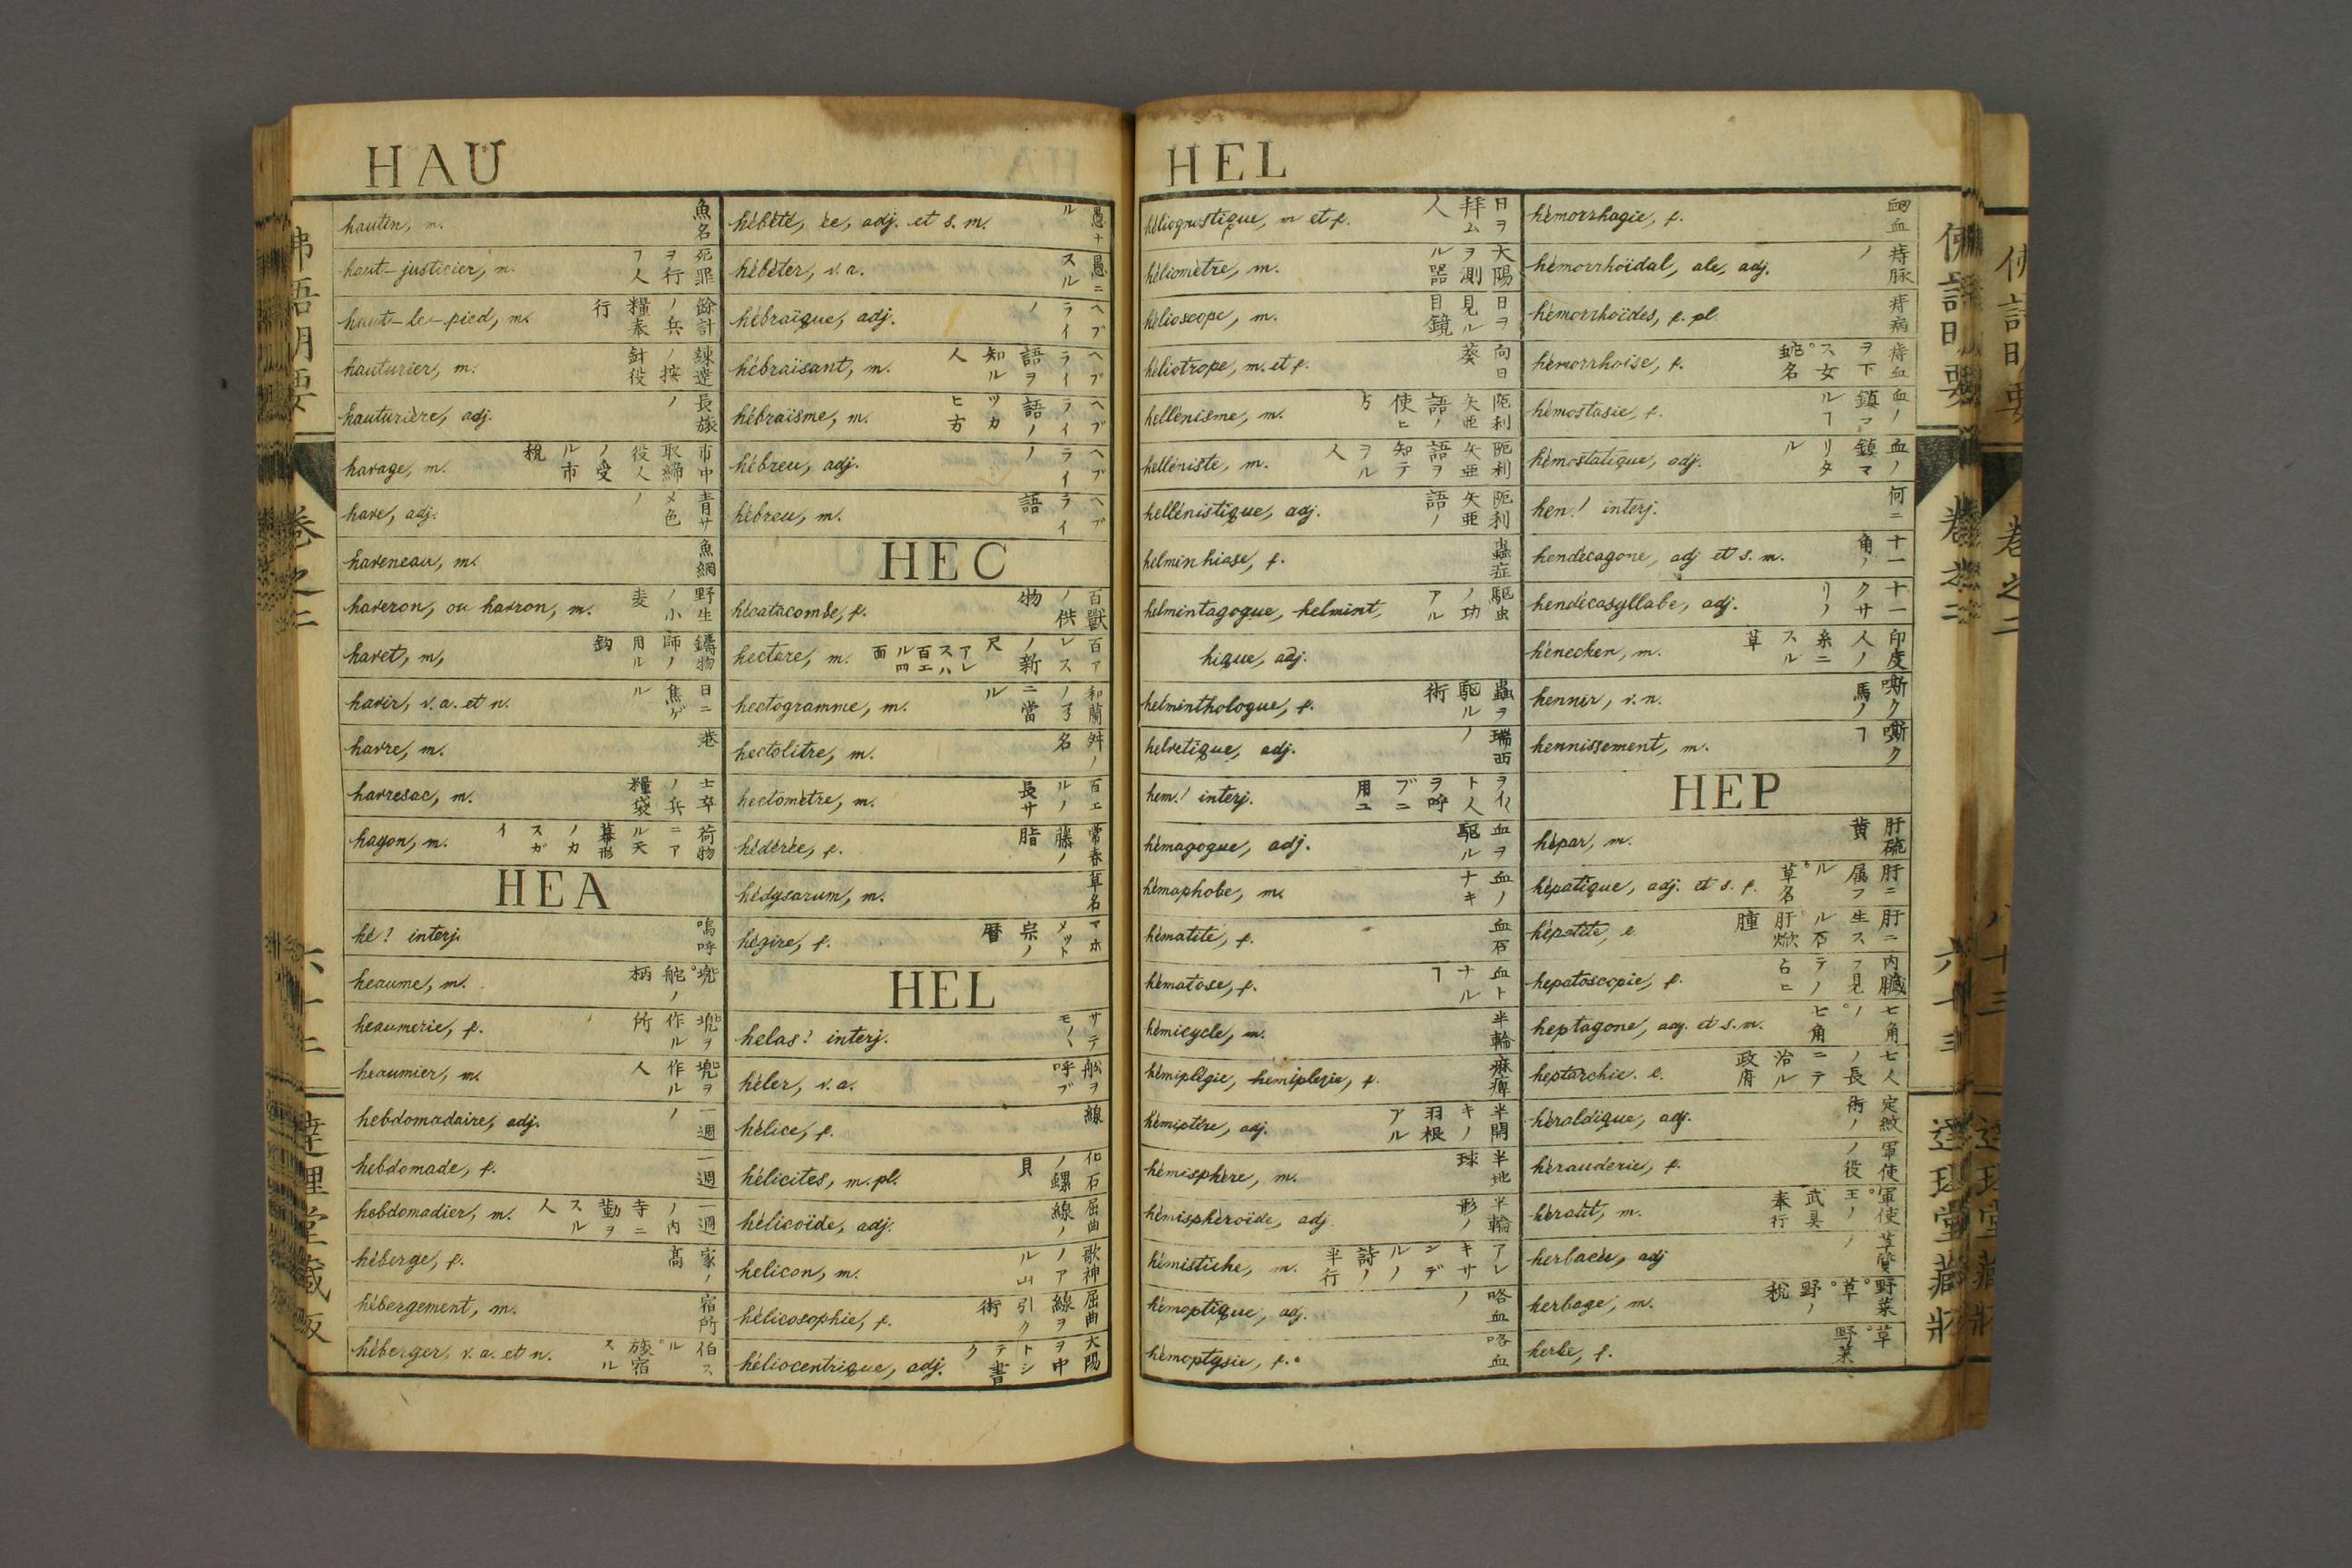 HAU
hautin, m. 魚名
haut-justicier, m. 死罪ヲ行フ人
haut-le-pied, m. 餘計ノ兵糧奉行
hauturier, m. 練達ノ按針役
hauturière, adj. 長旅ノ
havage, m. 市中取締役人ノ受ル市税
have, adj. 青サメ色ノ
haveneau, m. 魚網
haveron, ou havron, m. 野生ノ小麦
havet, m, 鑄物師ノ用ル鈎
havir, v.a. et n. 日ニ焦ゲル
havre, m. 港
havresac, m. 士卒ノ兵糧袋
hayon, m. 荷物ニアル天幕形ノカスガイ
HEA
hé? interj. 嗚呼
heaume, m. 兜゜舵ノ柄
heaumerie, f. 兜ヲ作ル所
heaumier, m. 兜ヲ作ル人
hebdomadaire, adj. 一週ノ
hebdomade, f. 一週
hebdomadier, m. 一週ノ内寺ニ勤ヲスル人
héberge, f. 家ノ高
hébergement, m. 宿所
héberger, v.a. et n. 伯スル゜旅宿スル
hébété, ée, adj. et s. m. 愚ナル
hébéter, v.a. 愚ニスル
hébraïque, adj. ヘブライノ
hébraïsant, m. ヘブライ語ヲ知ル人
hébraïsme, m. ヘブライ語ノツカヒ方
hébreu, adj. ヘブライノ
hébreu, m. ヘブライ語
HEC
hécatacombe, f. 百獸ノ供物
hectare, m. 百アレスノ新尺
hectogramme, m. 和蘭ノ ニ當ル
hectolitre, m. 舛ノ名
hectomètre, m. 百エルノ長サ
hédérée, f. 常春藤ノ脂
hédysarum, m. 草名
hégire, f. マホメット宗ノ暦
HEL
helas! interj. サテモ〱
héler, v.a. 舩ヲ呼ブ
hélice, f. 線
hélicites, m. pl. 化石ノ螺貝
hélicoïde, adj. 屈曲線ノ
helicon, m. 歌神ノアル山
hélicosophie, f. 屈曲線ヲ引ク術
héliocentrique, adj. 大陽ヲ中トシテ書ク
HEL
héliognostique, m et f. 日ヲ拜ム人
héliomètre, m. 大陽ヲ測ル器
hélioscope, m. 日ヲ見ル目鏡
héliotrope, m. et f. 向日葵
hellénisme, m. 阨利矢亜語ノ使ヒ方
helléniste, m. 阨利矢亜語ヲ知テヲル人
hellénistique, adj. 阨利矢亜語ノ
helminhiase, f. 蟲症
helmintagogue, helmint, 駆虫ノ功アル
hique, adj.
helminthologue, f. 蟲ヲ駆ル術
helvetique, adj. 瑞西ノ
hem! interj. ヲイト人ヲ呼ブニ用ユ
hémagogue, adj. 血ヲ駆ル
hémaphobe, m. 血ノナキ
hématite, f. 血石
hématose, f. 血トナルヿ
hémicycle, m. 半輪
hémiplégie, hemiplexie, f. 痳痺
hémiptère, adj. 半開キノ羽根アル
hémisphère, m. 半地球
hémisphéroïde, adj. 半輪形ノ
hémistiche, m. アレキサンデルノ詩ノ半行
hémoptique, adj. 咯血ノ
hémoptysie, f. 咯血
hémorrhagie, f. 衄血
hémorrhoïdal, ale, adj. 痔脉ノ
hémorrhoïdes, f. pl. 痔病
hémorrhoïse, f. 痔血ヲ下ス女゜蛇名
hémostasie, f. 血ノ鎮マルヿ
hémostatique, adj. 血ノ鎮マリタル
hen! interj. 何ニ
hendécagone, adj et s. m. 十一角ノ
hendécasyllabe, adj. 十一クサリノ
hénechen, m. 印度人ノ糸ニスル草
hennir, v.n. 嘶ク馬ノ
hennissement, m. 嘶クヿ
HEP
hépar, m. 肝硫黄
hépatique, adj. et s. f. 肝ニ属フル゜草名
hépatite, f. 肝ニ生スル石゜肝焮腫
hepatoscopie, f. 内臓ヲ見テノ占ヒ
heptagone, adj. et s.m. 七角ノ゜七角
heptarchie. f. 七人ノ長ニテ治ル政府
héraldique, adj. 定紋術ノ
hérauderie, f. 軍使ノ役
hérault, m. 軍使゜王ノ武具奉行
herbacée, adj 草質ノ
herbage, m. 野菜゜草゜野ノ税
herbe, f. 草゜野菜
佛語明要 卷之二 六十二 達理堂藏版
佛語明要 卷之二 六十三 達理堂藏版